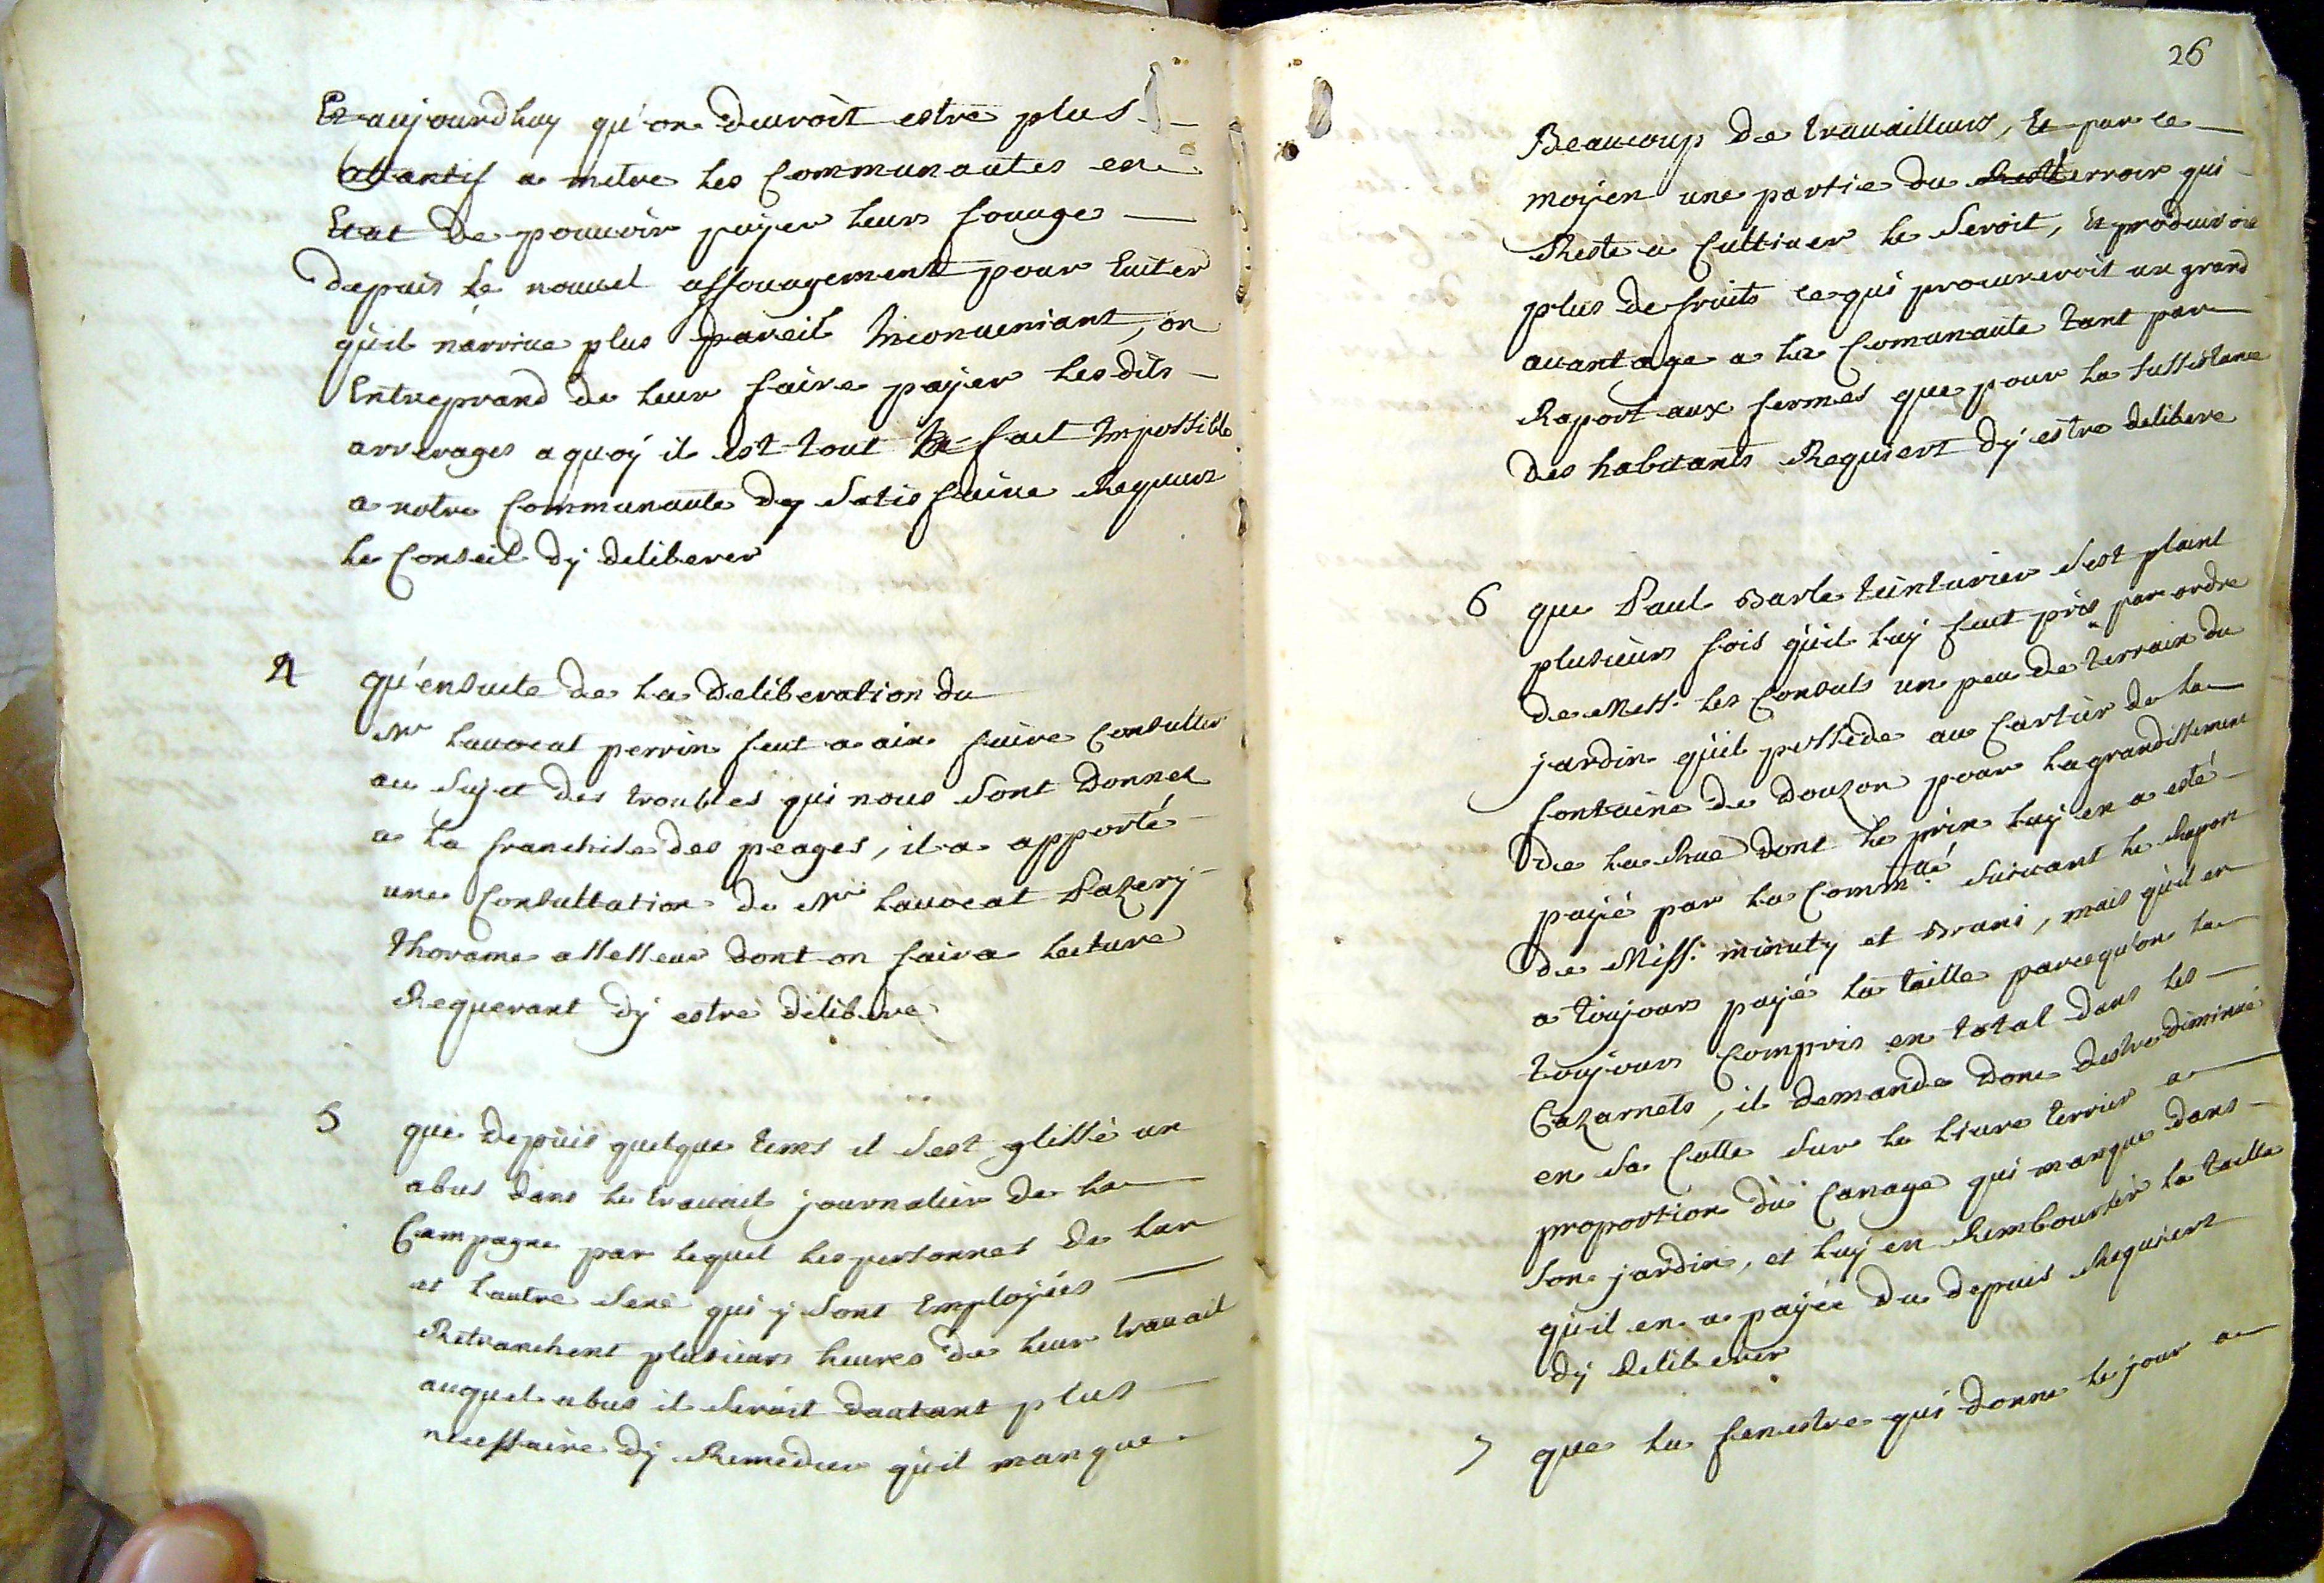 Et aujourdhuy qu'on devroit estre plus
attantif a metre les Communautes en
Etat de pouvoir payer leurs fouage
depuis le nouvel affouagement pour Eviter
qu'il n'arrive plus pareil Inconveniant, on
Entreprand de leur faire payer lesdits
arrerages a quoy il est tout a fait Impossible
a notre Communaute dy satisfaire Requier
le Conseil dy deliberer
4 qu'ensuite de la Deliberation du
Mr lauocat perrin feut a aix faire Consulter
au sujet des troubles qui nous sont donnes
a la franchise des peages, il a apporté
une Consultation de Mr lauocat Pazery
thorame assesseur dont on faira lecture
Requerant dy estre deliberé
5 que depuis quelque tems il sest glissé un
abus dans le travail journalier de la
Campagne par lequel les personnes de lun
et lautre sexe qui y sont Employées
Retranchent plusieurs heures de leur travail
auquel abus il seroit dautant plus
necessaire dy Remedier qu'il manque
26
Beaucoup de travailleurs, Et par ce
moyen une partie du terroir qui
Reste a Cultiver le seroit, Et produiroit
plus de fruits ce qui procureroit un grand
avantage a la Comunaute tant par
Raport aux fermes que pour la subsistance
des habitants Requiert dy estre delibere
6 que Paul Barle teinturier sest plaint
plusieurs fois qu'il luy fut pris par ordre
de Mess. les Consuls un peu de terrain du
jardin qu'il possede au Cartier de la
fontaine de Douzon pour lagrandissement
de la Rue dont le prix luy en a esté
payé par la Comm.té suivant le Raport
de Mess. minuty et Brani, mais qu'il en
a toujours payé la taille parcequ'on la
toujours Compris en total dans les
Cazarnets, il demande donc destre diminué
en sa Cotte sur le livre terrier a
proportion du Canage qui manque dans
son jardin, et luy en Rembourser la taille
qu'il en a payée du depuis Requiert
dy deliberer
7 que la fenestre qui donne le jour a